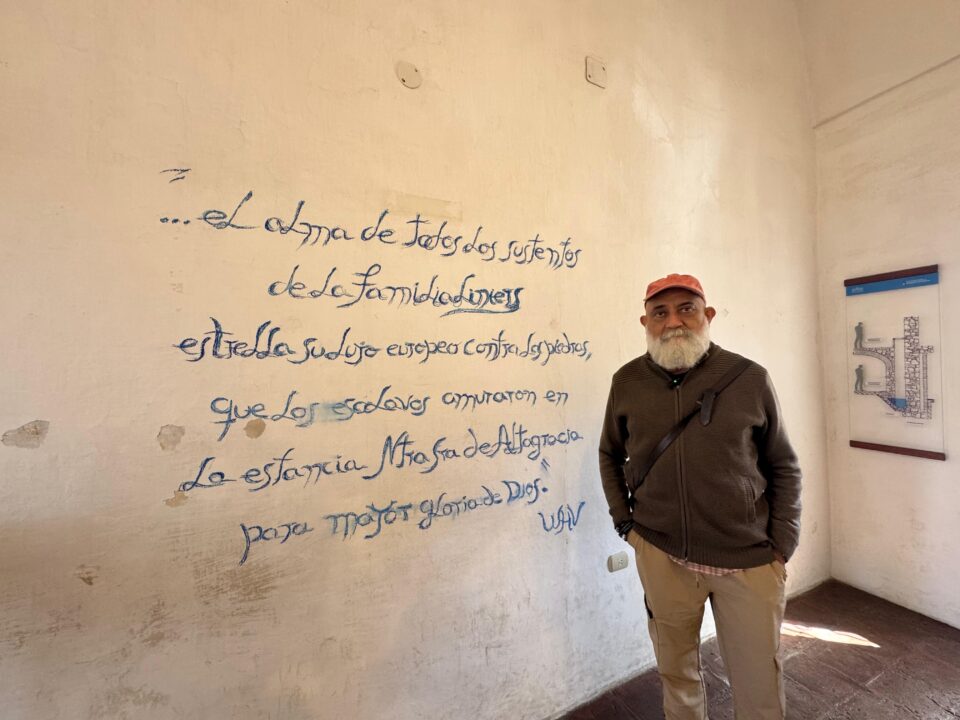 "
... el alma de todos los sustentos
de la familia Liniers
estrella su lujo europeo contra las piedras,
que los esclavos amuraron en
la estancia Ntra Sra de Altagracia
para mayor gloria de Dios."